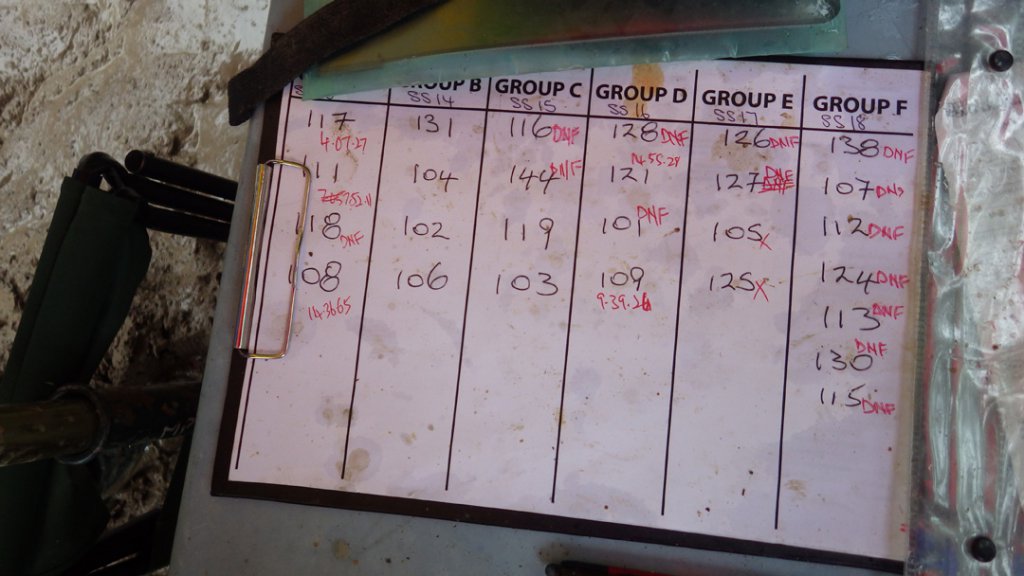 GROUP B GROUP C GROUP D GROUP E GROUP F
SS 14 SS 15 SS 16 SS 17 SS 18
117 131 116 DNF 128 DNF 126 DNF 138 DNF
4.07.27 14.55.28
11 104 144 DNF 121 127 DNF 107 DNF
18 DNF 102 119 101 DNF 105 X 112 DNF
108 106 103 109 125 X 124 DNF
14.36.65 9.39.26
113 DNF
130 DNF
115 DNF